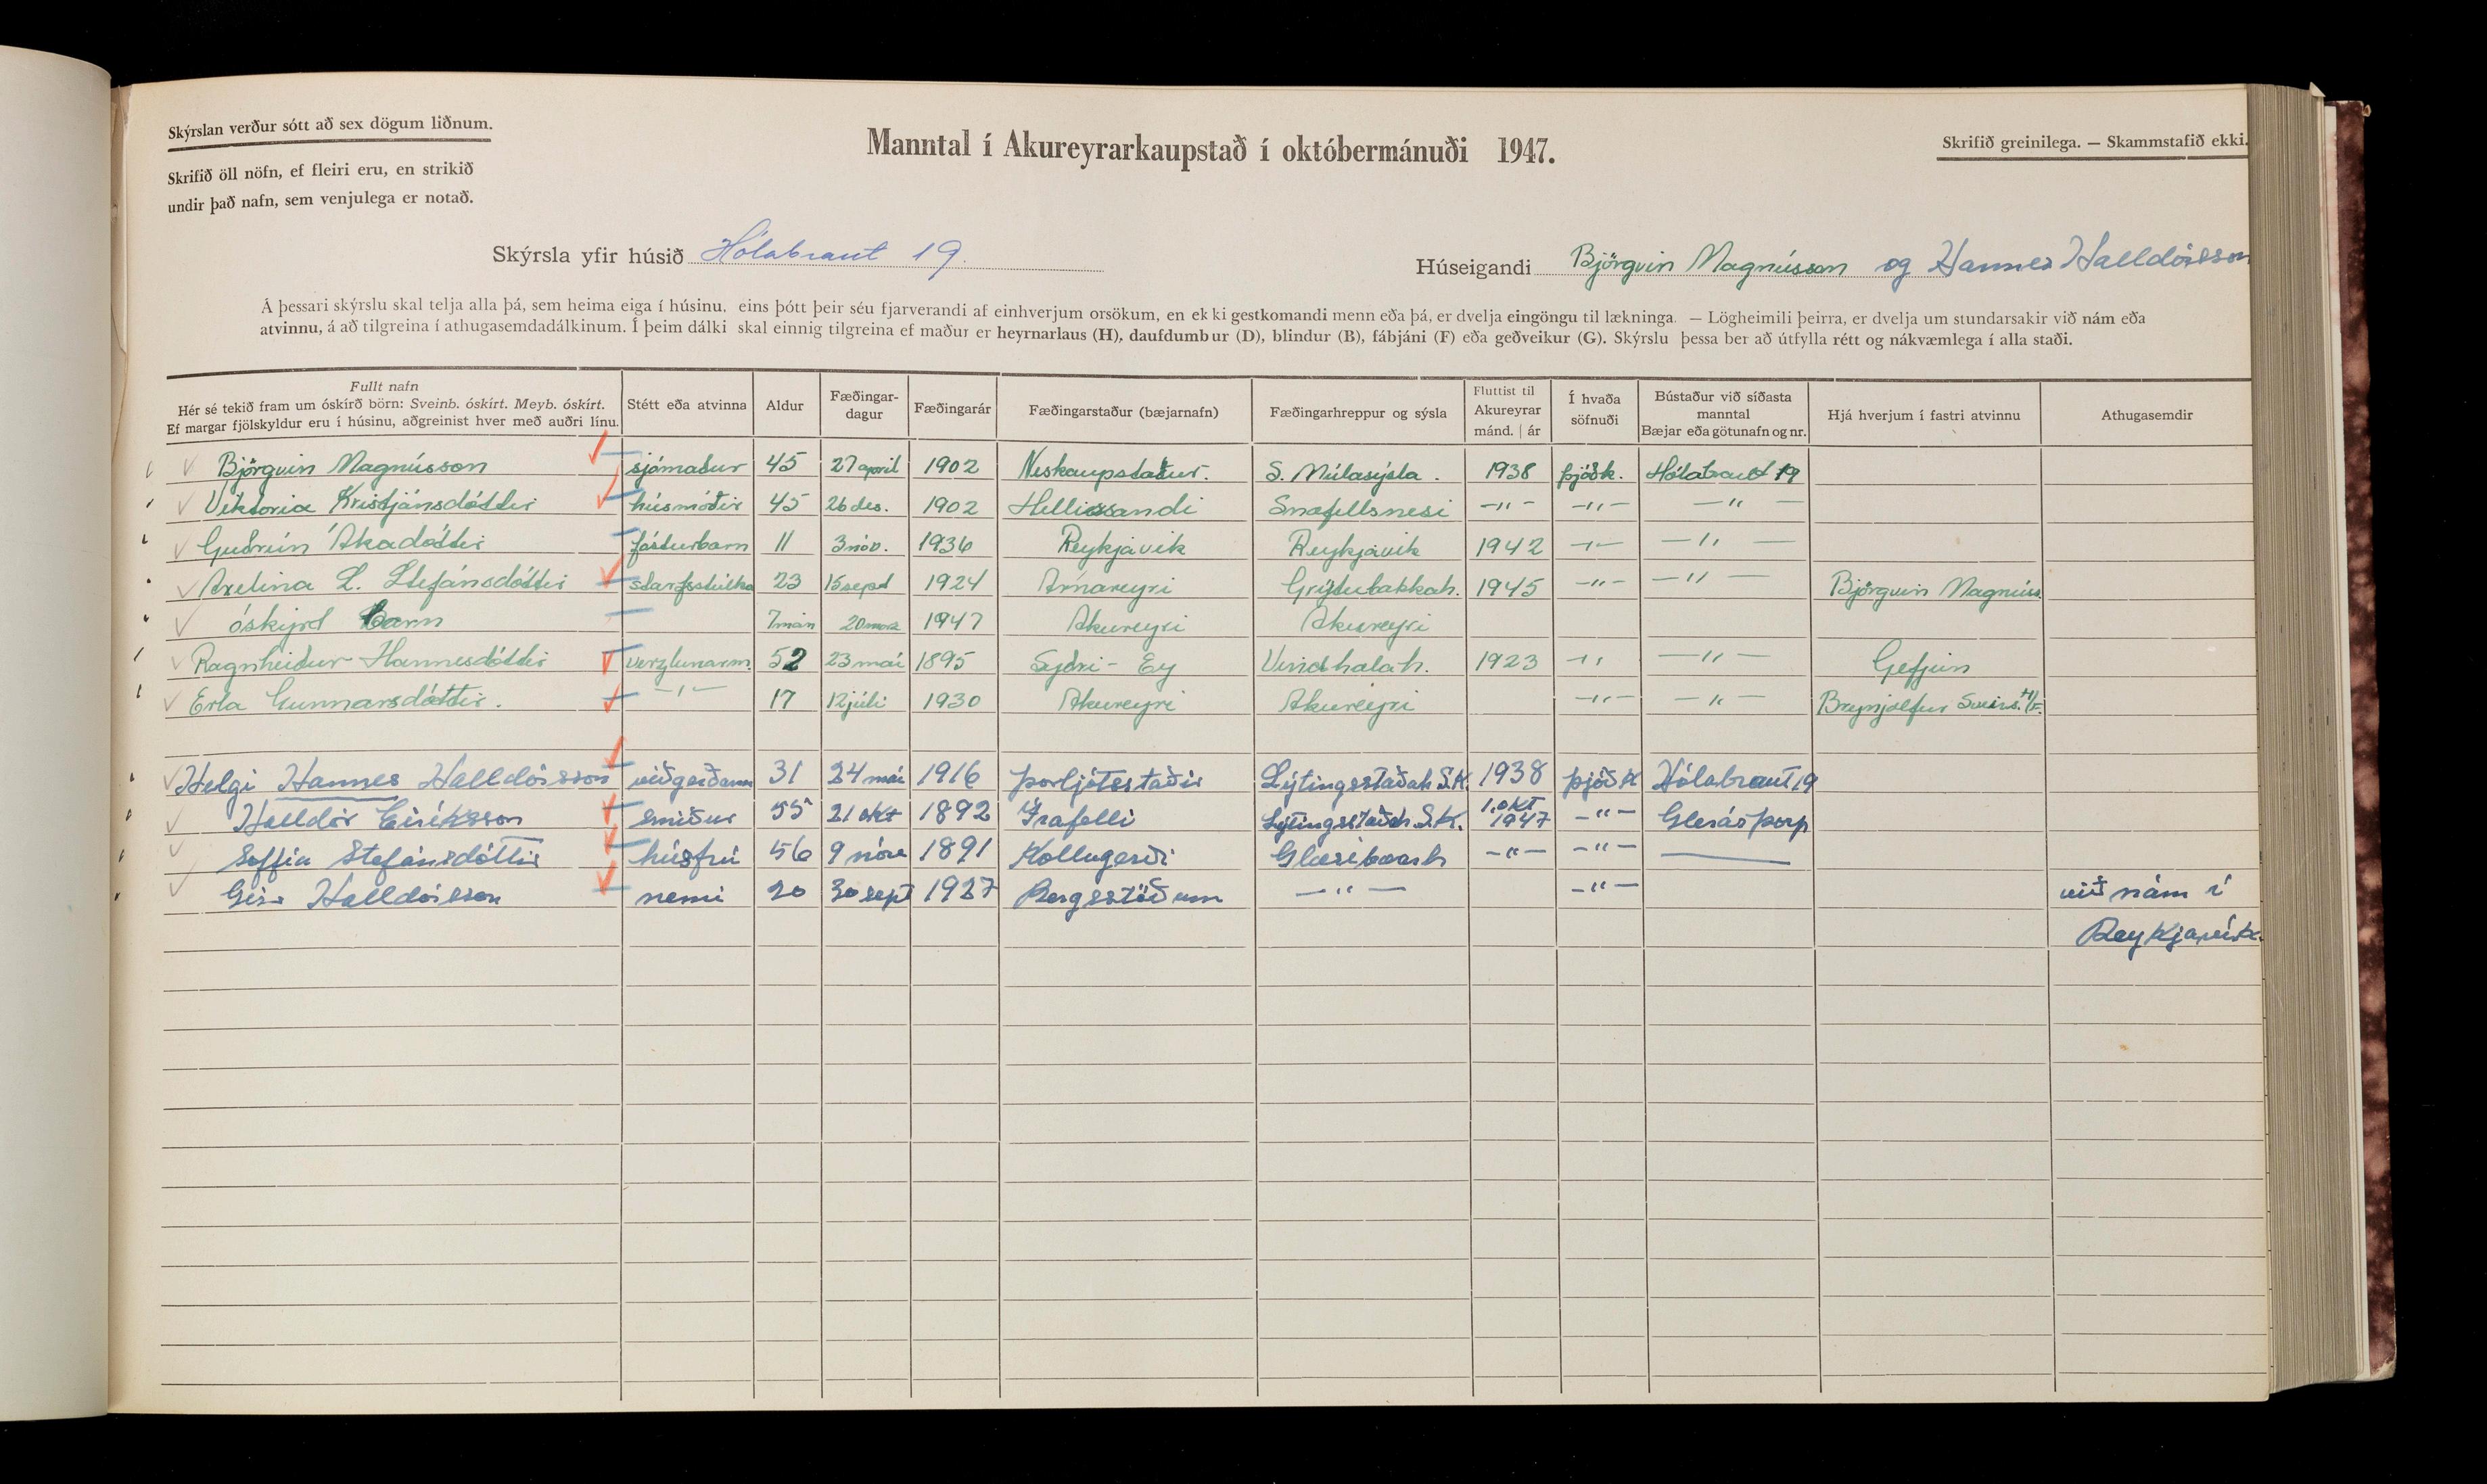 Skýrslan verður sótt að sex dögum liðnum.
Skrifið öll nöfn, ef fleiri eru, en strikið
undir það nafn, sem venjulega er notað.
Manntal í Akureyrarkaupstað í októbermánuði 1947.
Skrifið greinilega. — Skammstafið ekki.
Skýrsla yfir húsið Hólabraut 19.
Húseigandi Björgvin Magnússon og Hannes Halldórsson
Á þessari skýrslu skal telja alla þá, sem heima eiga í húsinu, eins þótt þeir séu fjarverandi af einhverjum orsökum, en ekki gestkomandi menn eða þá, er dvelja eingöngu til lækninga. — Lögheimili þeirra, er dvelja um stundarsakir við nám eða
atvinnu, á að tilgreina í athugasemdadálkinum. Í þeim dálki skal einnig tilgreina ef maður er heyrnarlaus (H), daufdumbur (D), blindur (B), fábjáni (F) eða geðveikur (G). Skýrslu þessa ber að útfylla rétt og nákvæmlega í alla staði.
Fullt nafn Hér sé tekið fram um óskírð börn: Sveinb. óskírt. Meyb. óskírt. Ef margar fjölskyldur eru í húsinu, aðgreinist hver með auðri línu. Stétt eða atvinna Aldur Fæðingar-dagur Fæðingarár Fæðingarstaður (bæjarnafn) Fæðingarhreppur og sýsla Fluttist til Akureyrar mánd. | ár Í hvaða söfnuði Bústaður við síðasta manntal Bæjar eða götunafn og nr. Hjá hverjum í fastri atvinnu Athugasemdir
Björgvin Magnússon sjómaður 45 27 april 1902 Neskaupstaður. S. Múlasýsla. 1938 þjóðk. Hólabraut 19
Viktoria Kristjánsdóttir húsmóðir 45 26 des. 1902 Hellissandi Snæfellsnesi —"— —"— —"—
Guðrún Ákadóttir fósturbarn 11 3 nóv. 1936 Reykjavik Reykjavik 1942 —"— —"—
Axelina L. Stefánsdóttir starfsstúlka 23 15 sept 1924 Árnareyri Grýtubakkah. 1945 —"— —"— Björgvin Magnúss.
óskýrt Barn 7 mán 20 mars 1947 Akureyri Akureyri
Ragnheiður Hannesdóttir verzlunarm. 52 23 mai 1895 Syðri-Ey Vindhælah. 1923 —"— —"— Gefjun
Erla Gunnarsdóttir. —"— 17 12 júlí 1930 Akureyri Akureyri —"— —"— Brynjólfur Sveinss. H/F.
Helgi Hannes Halldórsson viðgerðarm 31 24 mai 1916 Þorljótsstaðir Lýtingsstaðah S.K. 1938 þjóðk Hólabraut 19
Halldór Eiríksson smiður 55 21 okt 1892 Írafelli Lýtingsstaðah S.K. 1. okt 1947 —"— Glerárþorp
Soffía Stefánsdóttir húsfrú 56 9 nóv 1891 Kollugerði Glæsibæarh —"— —"—
Halldórsson nemi 20 30 sept 1927 Bergsstöðum —"— —"— við nám í
Reykjavík.